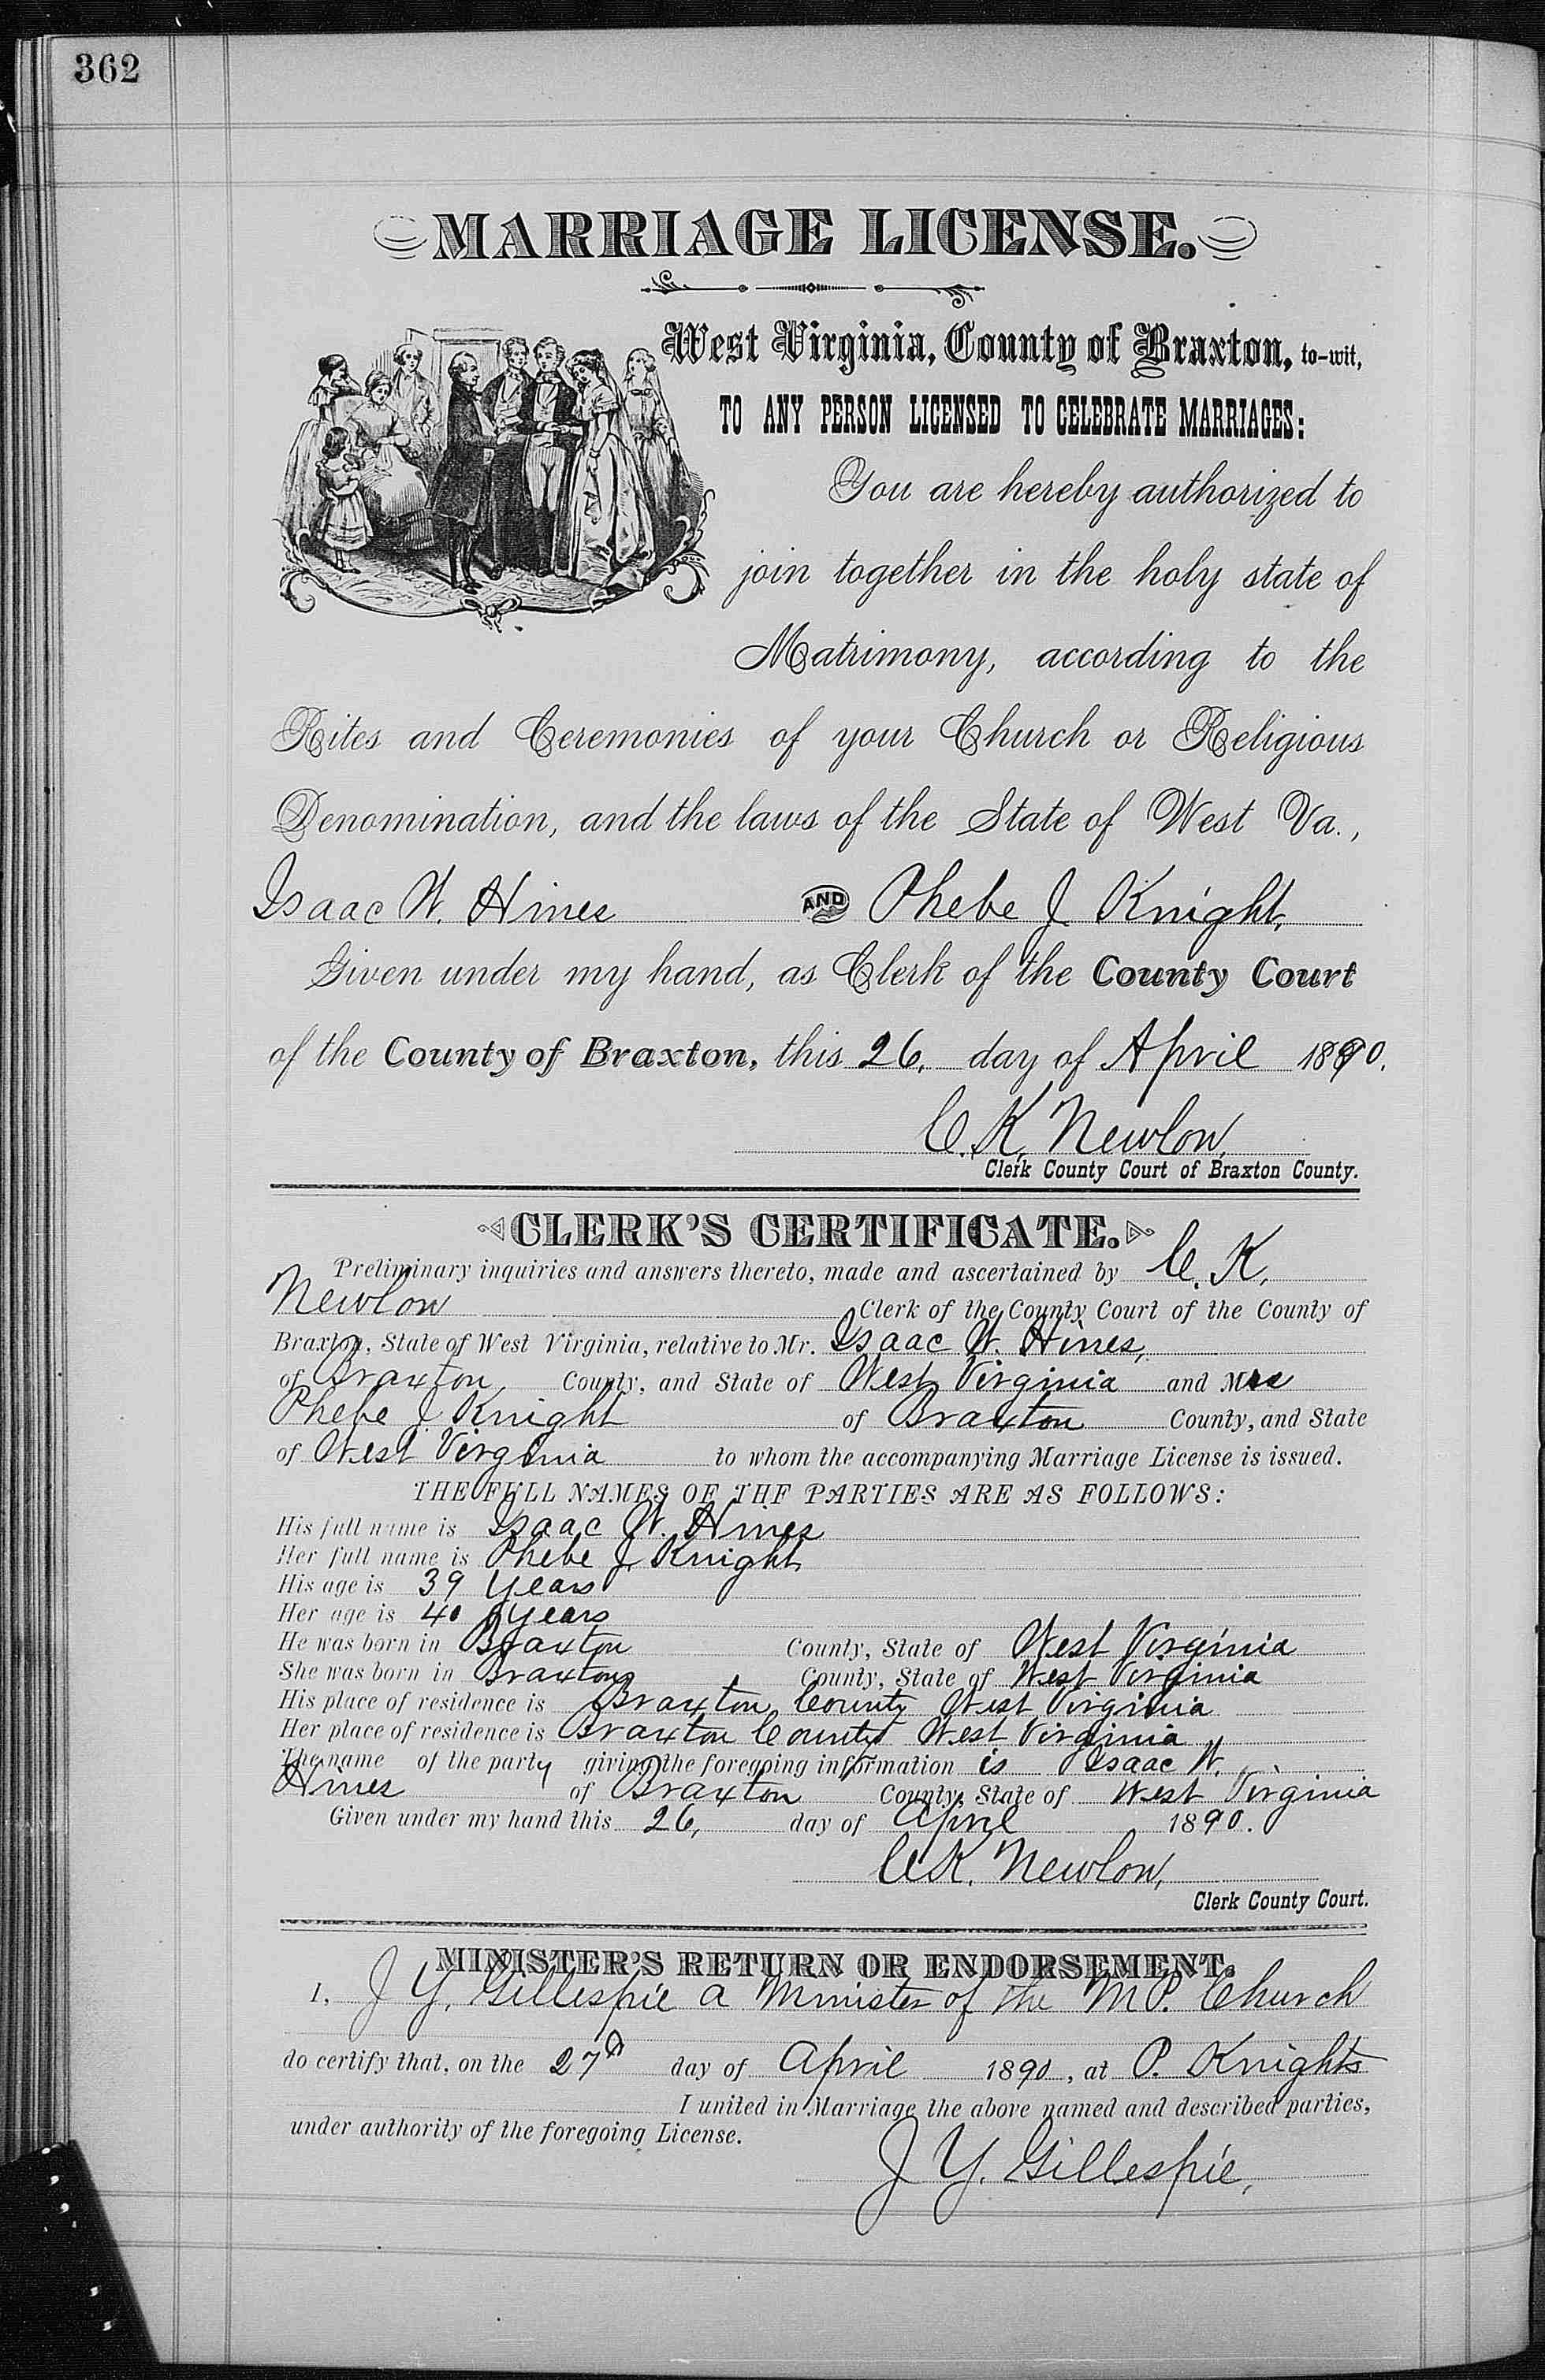 362
MARRIAGE LICENSE.
West Virginia, County of Braxton, to-wit,
TO ANY PERSON LICENSED TO CELEBRATE MARRIAGES:
You are hereby authorized to
join together in the holy state of
Matrimony, according to the
Rites and Ceremonies of your Church or Religious
Denomination, and the laws of the State of West Va.,
Isaac W. Hines AND Phebe J Knight,
Given under my hand, as Clerk of the County Court
of the County of Braxton, this 26, day of April 1890.
C. K. Newlon,
Clerk County Court of Braxton County.
CLERK'S CERTIFICATE.
Preliminary inquiries and answers thereto, made and ascertained by C. K.
Newlon Clerk of the County Court of the County of
Braxton, State of West Virginia, relative to Mr. Isaac W. Hines,
of Braxton County, and State of West Virginia and Mrs
Phebe J Knight of Braxton County, and State
of West Virginia to whom the accompanying Marriage License is issued.
THE FULL NAMES OF THE PARTIES ARE AS FOLLOWS:
His full name is Isaac W. Hines
Her full name is Phebe J. Knight
His age is 39 Years
Her age is 40 Years
He was born in Braxton County, State of West Virginia
She was born in Braxton County, State of West Virginia
His place of residence is Braxton County West Virginia
Her place of residence is Braxton County West Virginia
The name of the party giving the foregoing information is Isaac W.
Hines of Braxton County, State of West Virginia
Given under my hand this 26, day of April 1890.
C.K. Newlon,
Clerk County Court.
MINISTER'S RETURN OR ENDORSEMENT.
I, J Y. Gillespie a Minister of the M.P. Church
do certify that, on the 27th day of April 1890, at P. Knights
I united in Marriage the above named and described parties,
under authority of the foregoing License.
J Y. Gillespie,